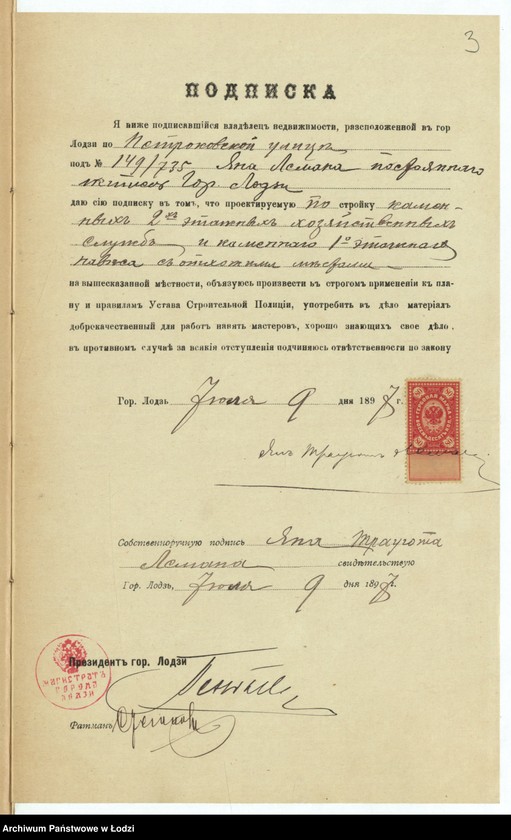 3
ПОДПИСКА
Я ниже подписавшійся владѣлец недвижимости, расположенной въ гор
Лодзи по Петроковской улицѣ
подъ № 149/735 Яна Ласмана постояннаго
жителя Гор. Лодзи
даю сію подписку в томъ, что проектируемую по стройку камен-
ныхъ 2хъ этажныхъ хозяйственныхъ
службъ и каменнаго 1о этажнаго
навѣса съ отхожими мѣстами
на вышесказанной мѣстности, объязуюсь произвести въ строгом примѣненіи къ пла-
ну и правилам Устава Строительной Полиціи, употребить въ дѣло матеріал
доброкачественный для работ нанять мастеров, хорошо знающих свое дѣло,
въ противном случнѣ за всякія отступленія подчиняюсь отвѣтственности по закону
Гор. Лодзь Іюля 9 дня 1897 г.
Ян Траугот
Собственноручную подпись Яна Траугота
Ласмана свидѣтельствую
Гор. Лодзь, Іюля 9 дня 1897 г.
Президентъ гор. Лодзи
МАГИСТРАТЪ ГОРОДА ЛОДЗИ
Ратманъ
Archiwum Państwowe w Łodzi